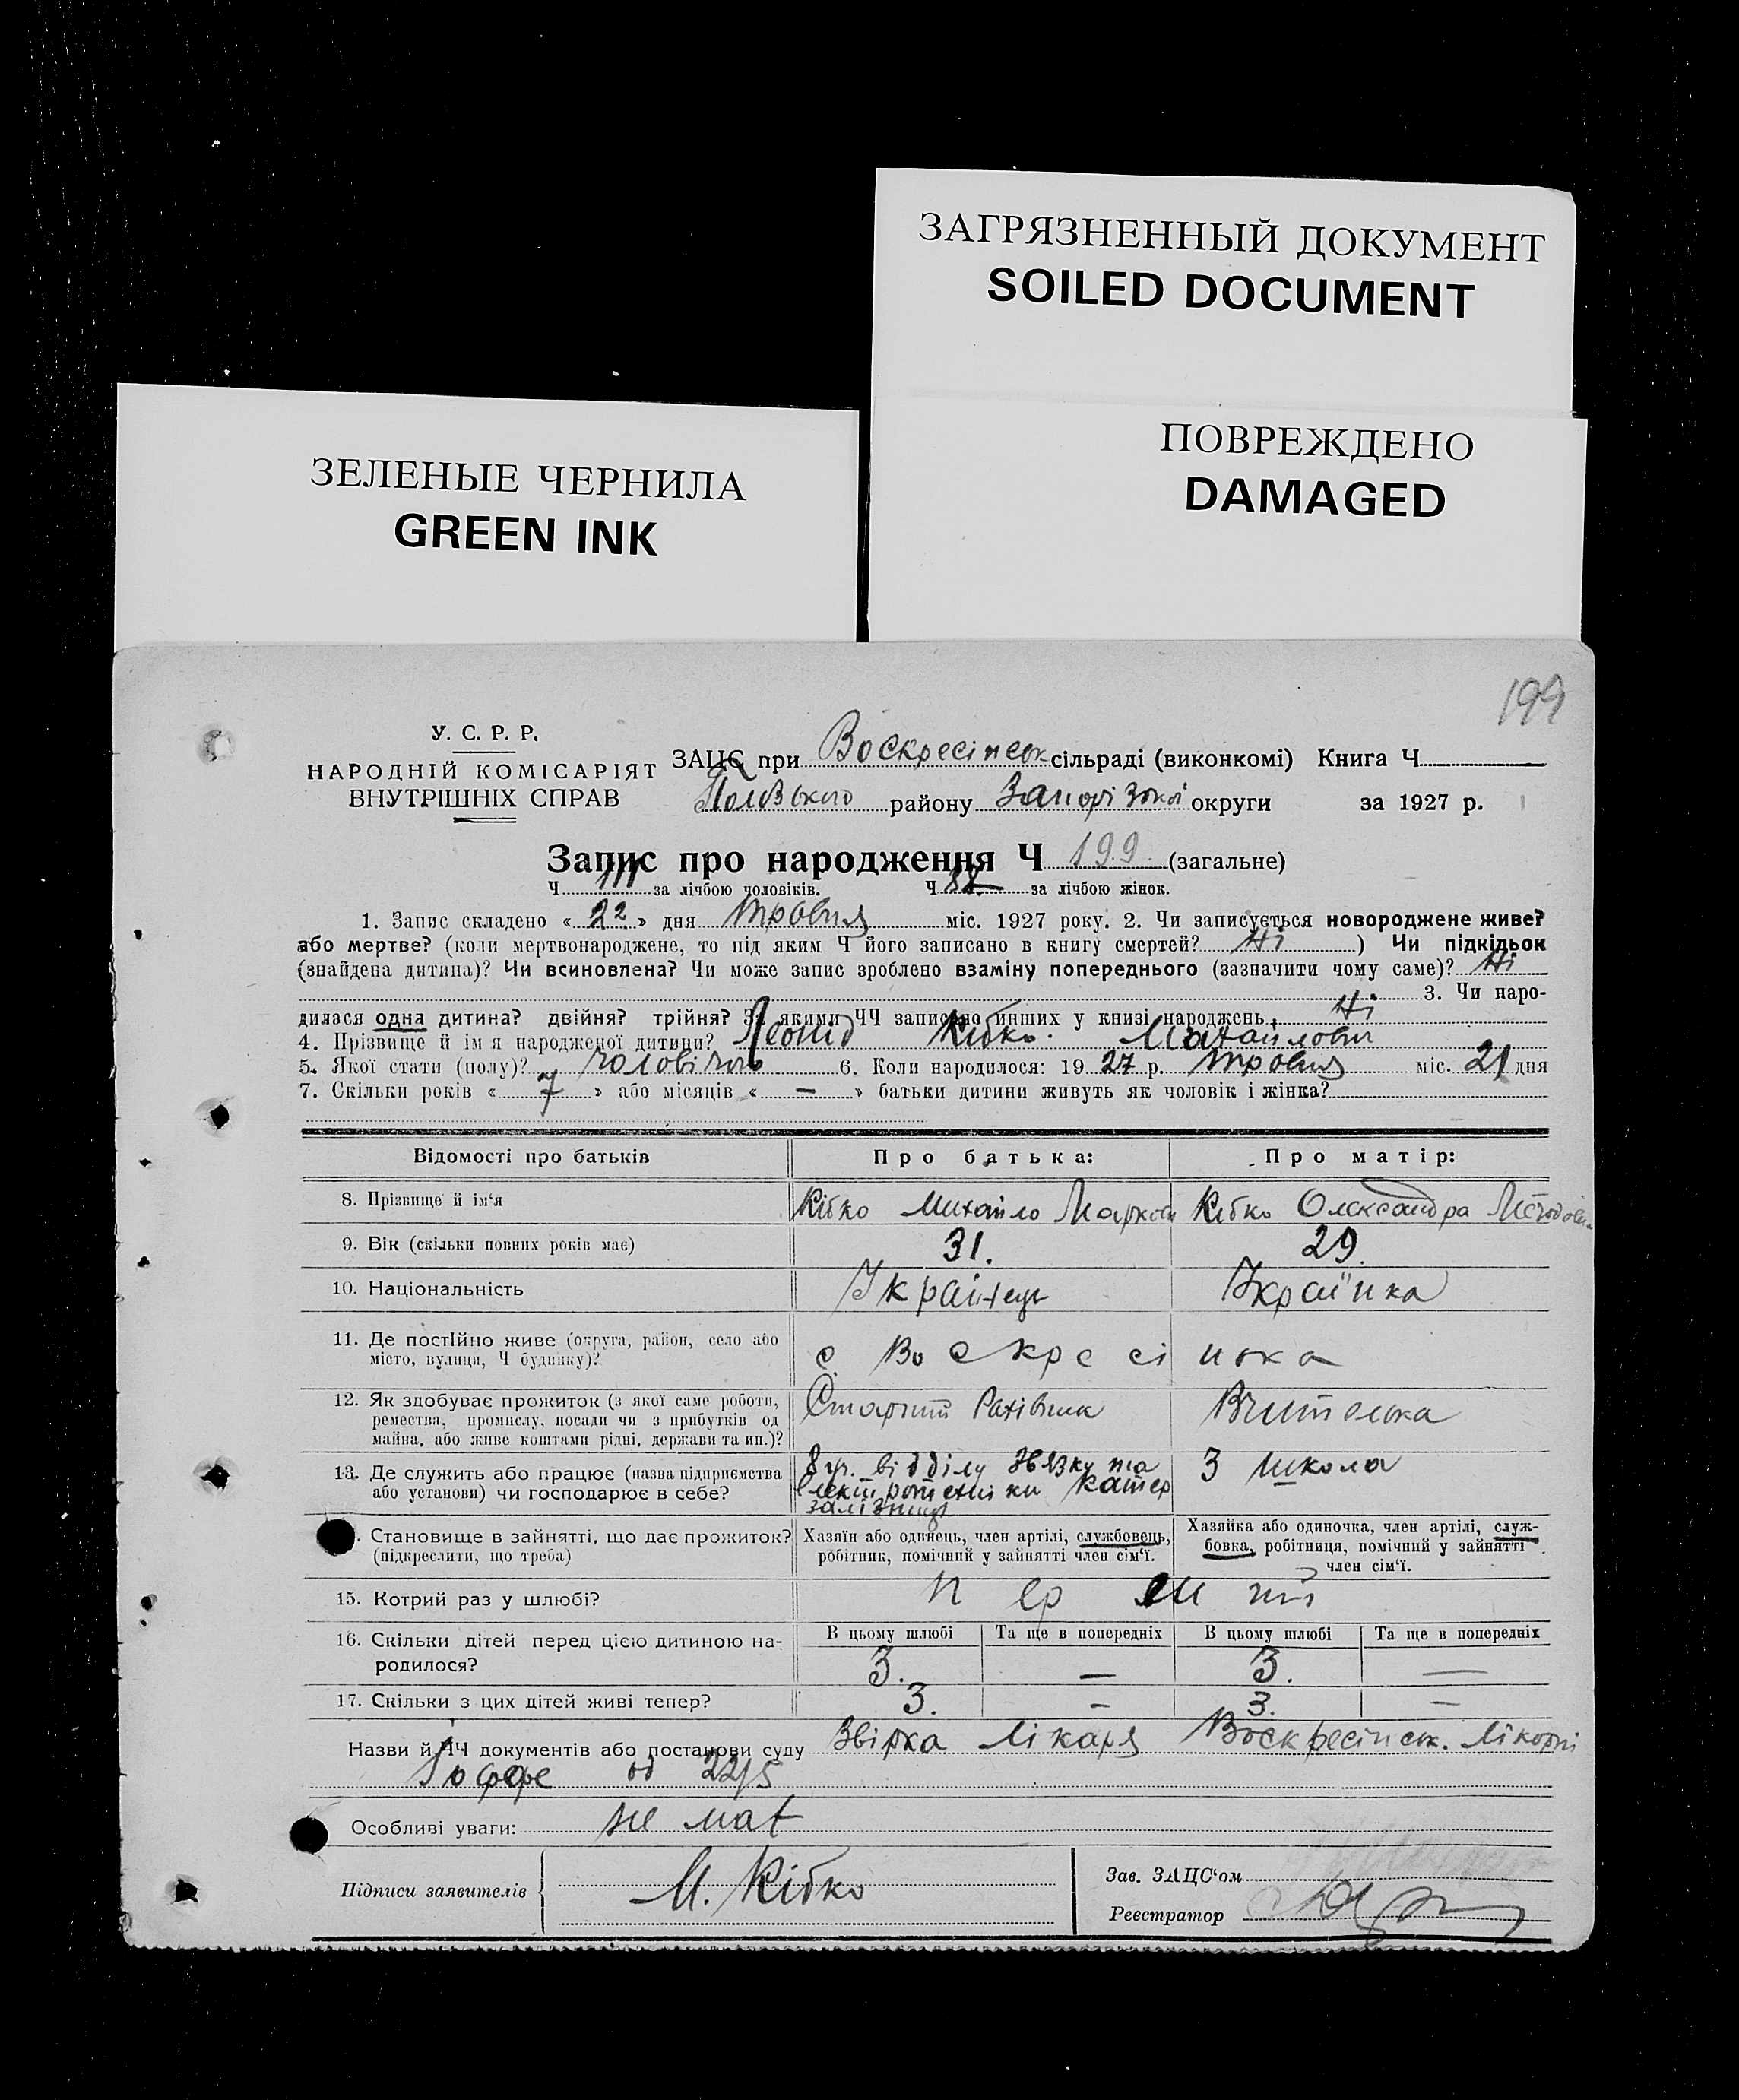 ЗАГРЯЗНЕННЫЙ ДОКУМЕНТ
SOILED DOCUMENT
ПОВРЕЖДЕНО
DAMAGED
ЗЕЛЕНЫЕ ЧЕРНИЛА
GREEN INK
199
У. С. Р. Р.
НАРОДНІЙ КОМІСАРІЯТ
ВНУТРІШНІХ СПРАВ
ЗАЦС при Воскресінськ сільраді (виконкомі) Книга Ч
району Запорізької округи за 1927 р.
Запис про народження Ч 199 (загальне)
Ч 111 за лічбою чоловіків. Ч 88 за лічбою жінок.
1. Запис складено « 22 » дня травня міс. 1927 року. 2. Чи записується новороджене живе?
або мертве? (коли мертвонароджене, то під яким Ч його записано в книгу смертей? Ні ) Чи підкідьок
(знайдена дитина)? Чи всиновлена? Чи може запис зроблено взаміну попереднього (зазначити чому саме)? Ні
3. Чи наро-
дилася одна дитина? двійня? трійня? За якими ЧЧ записано инших у книзі народжень Ні
4. Прізвище й ім'я народженої дитини? Леонід Кібко. Михайлович
5. Якої стати (полу)? чоловічого 6. Коли народилося: 19 27 р. травня міс. 21 дня
7. Скільки років « 7 » або місяців « — » батьки дитини живуть як чоловік і жінка?
Відомості про батьків Про батька: Про матір:
8. Прізвище й ім'я Кібко Михайло Марков Кібко Олександра
9. Вік (скільки повних років має) 31. 29.
10. Національність Українець Українка
11. Де постійно живе (округа, район, село або
місто, вулиця, Ч будинку)? с Воскресінска
12. Як здобуває прожиток (з якої саме роботи,
ремества, промислу, посади чи з прибутків од
майна, або живе коштами рідні, держави та ин.)?
Старший Рахівник Вчителька
13. Де служить або працює (назва підприємства
або установи) чи господарює в себе?
8 уч. відділу звязку та
електротехніки Катер
залізниці
3 школа
Становище в зайнятті, що дає прожиток?
(підкреслити, що треба)
Хазяїн або одинець, член артілі, службовець,
робітник, помічний у зайнятті член сім'ї.
Хазяйка або одиночка, член артілі, служ-
бовка, робітниця, помічний у зайнятті
член сім'ї.
15. Котрий раз у шлюбі? перший
16. Скільки дітей перед цією дитиною на-
родилося?
В цьому шлюбі Та ще в попередніх В цьому шлюбі Та ще в попередніх
3. — 3. —
17. Скільки з цих дітей живі тепер? 3. – 3. —
Назви й ЧЧ документів або постанови суду Звірка лікаря Воскресінск. лікарні
Іоффе од 22/5
Особливі уваги: не має
Підписи заявителів М. Кібко
Зав. ЗАЦС'ом
Реєстратор